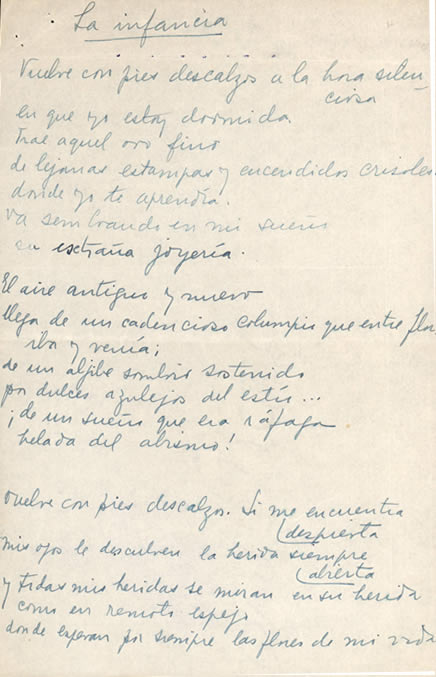 La infancia
Vuelve con pies descalzos a la hora silen-
ciosa
en que yo estoy dormida.
Trae aquel oro fino
de lejanas estampas y encendidos crisoles
donde yo te aprendía.
Va sembrando en mi sueño
su extraña joyería.
El aire antiguo y nuevo
llega de un cadencioso columpio que entre flor
iba y venía;
de un aljibe sombrío sostenido
por dulces azulejos del estío...
¡de un sueño que era ráfaga
helada del abismo!
Vuelve con pies descalzos. Si me encuentra
(despierta
mis ojos le descubren la herida siempre
(abierta
y todas mis heridas se miran en su herida
como en remoto espejo
donde esperan por siempre las flores de mi vida